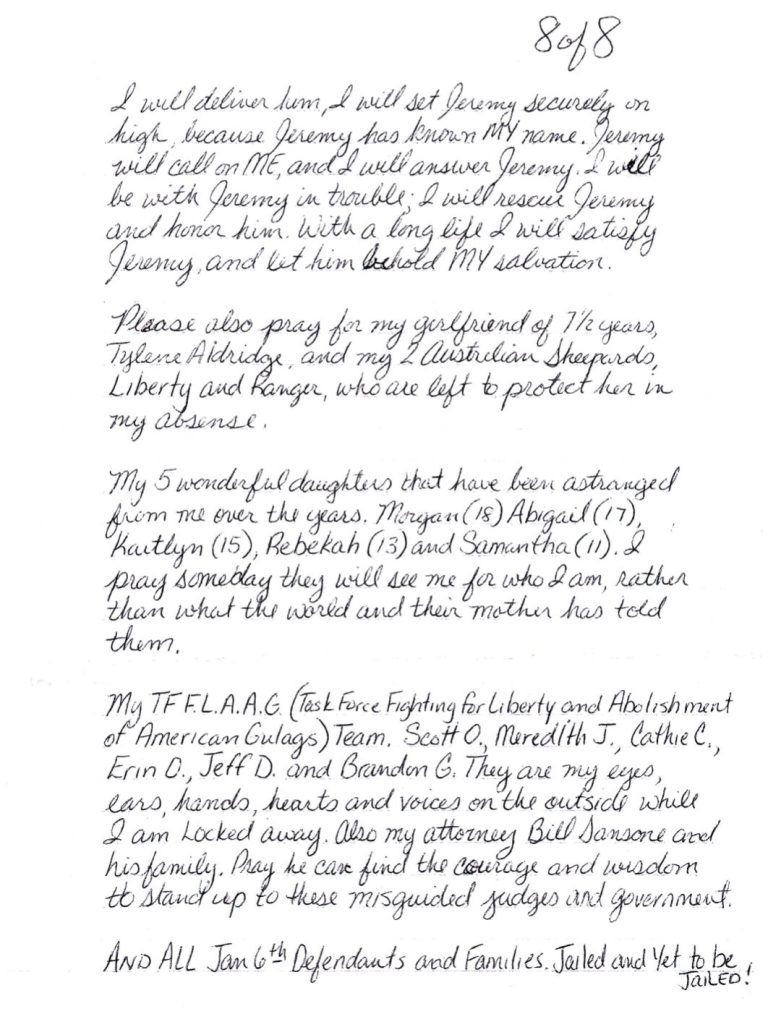 8 of 8
I will deliver him, I will set Jeremy securely on
high, because Jeremy has known MY name. Jeremy
will call on ME, and I will answer Jeremy. I will
be with Jeremy in trouble; I will rescue Jeremy
and honor him. With a long life I will satisfy
Jeremy, and let him behold MY salvation.
Please also pray for my girlfriend of 7½ years,
Tylene Aldridge, and my 2 Australian Sheepards,
Liberty and Ranger, who are left to protect her in
my absense.
My 5 wonderful daughters that have been astranged
from me over the years. Morgan (18) Abigail (17),
Kaitlyn (15), Rebekah (13) and Samantha (11). I
pray someday they will see me for who I am, rather
than what the world and their mother has told
them.
My TF F.L.A.A.G. (Task Force Fighting for Liberty and Abolishment
of American Gulags) Team. Scott O., Meredith J., Cathie C.,
Erin D., Jeff D. and Brandon G. They are my eyes,
ears, hands, hearts and voices on the outside while
I am Locked away. Also my attorney Bill Sansone and
his family. Pray he can find the courage and wisdom
to stand up to these misguided judges and government.
AND ALL Jan 6th Defendants and Families. Jailed and Yet to be
JAILED!